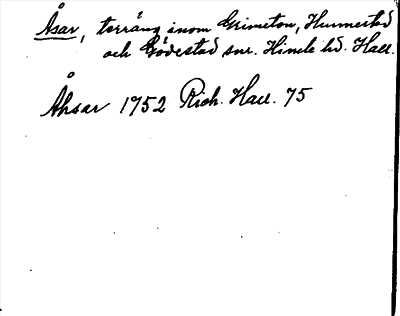 Åsar, terräng inom Grimeton, Hunnestad
och Gödestad snr. Himle hd. Hall.
Åhsar 1752 Rich. Hall. 75